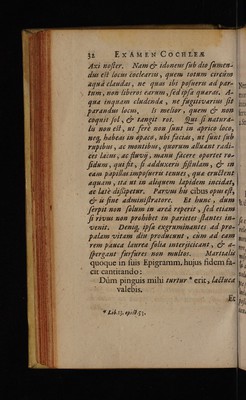 32 EXAMEN COCHLEÆ
Axi noster. Nam & idoneus sub dio sumen-
dus est locus coclearin, quem totum circùm
aquâ claudas, ne quas ibi posueris ad par-
tum, non liberos earum, sed ipsa quæras. A-
qua inquam cludenda, ne fugitivarius sit
parandus locus, is melior, quem & non
coquit sol, & tangit ros. Qui si natura-
lis non est, ut ferè non sunt in aprico loco,
neq, habeas in opaco, ubi facias, ut sunt sub
rupibus, ac montibus, quorum alluant radi-
ces lacus, ac fluvij, manu facere oportet ro-
sidum, qui fit, si adduxeris fistulam, & in
eam papillas imposueris tenues, quæ eructent
aquam, ita ut in aliquem lapidem incidat,
ac latè dissipetur. Parvus his cibus opus est,
& is sine administratore. Et hunc, dum
serpit non solùm in areâ reperit, sed etiam
si rivus non prohibet in parietes stantes in-
venit. Deniq, ipsa exgruminantes ad pro-
palam vitam diu producunt, cùm ad eam
rem pauca laurea folia interjiciant, & a-
spergant furfures non multos. Martialis
quoque in suis Epigram. hujus fidem fa-
cit cantitando:
Dùm pinguis mihi turtur * erit, lactuca
valebis.
Et
* Lib. 13. epist. 53.